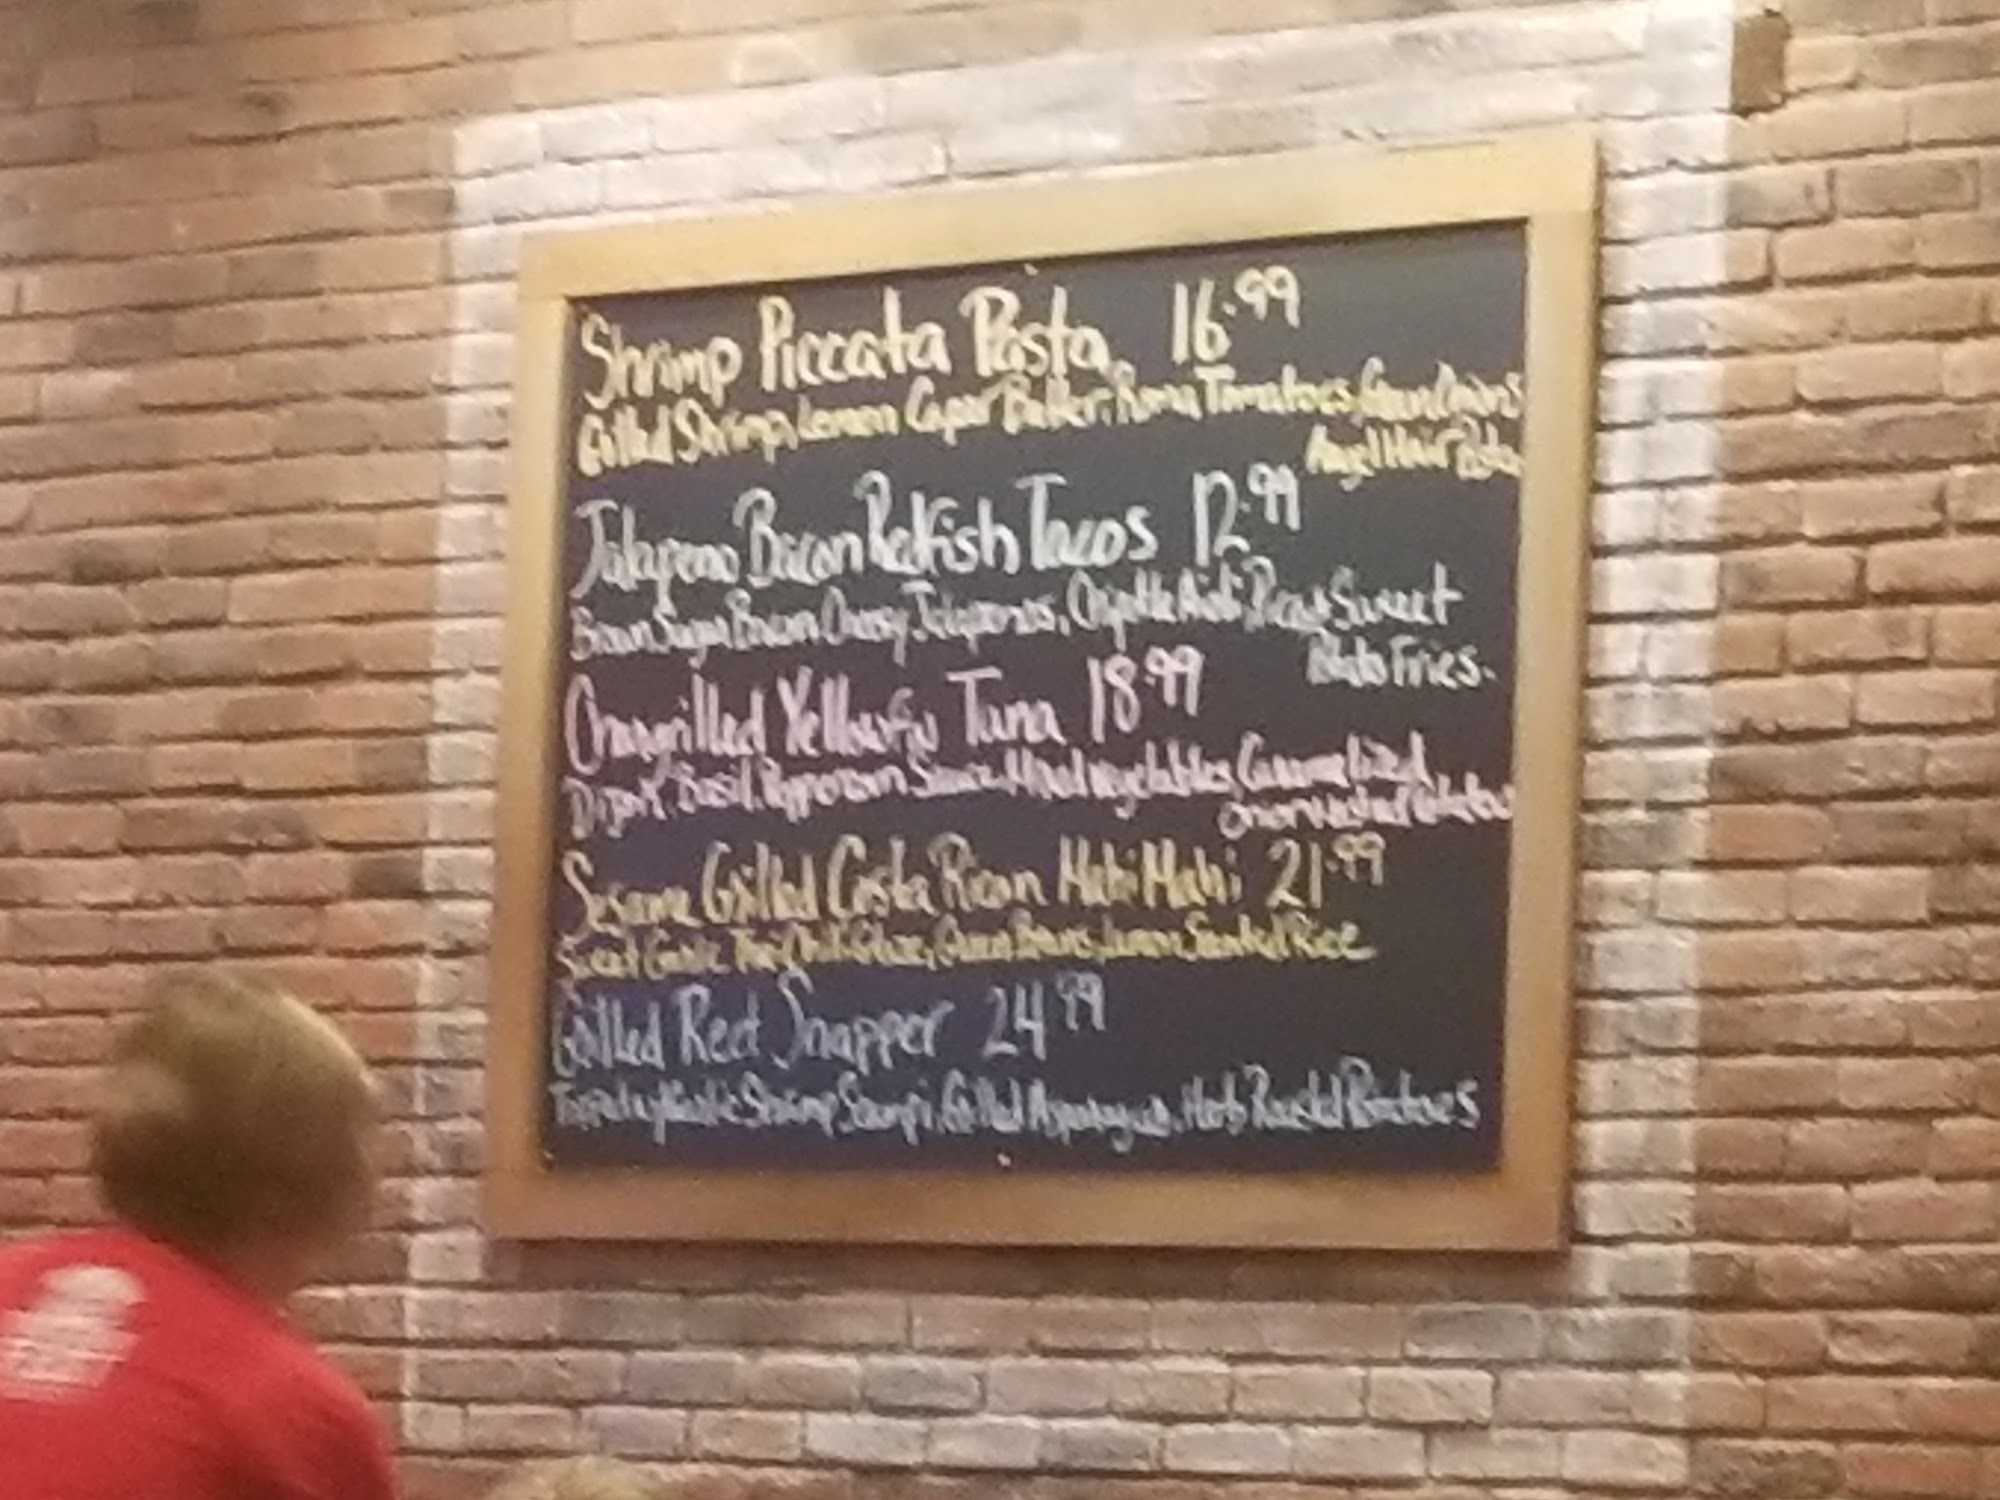 Shrimp Piccata Pasta 16.99
Grilled Shrimp, Lemon Caper Butter, Roma Tomatoes, Green Onions
Angel Hair Pasta
Jalapeno Bacon Redfish Tacos 12.99
Brown Sugar Bacon Jalapenos, Sweet
Potato Fries.
Yellowfin Tuna 18.99
Dijon, Basil, Peppercorn Sauce, Mixed Vegetables, Caramelized
Onion Mashed Potatoes
Sesame Grilled Costa Rican Mahi Mahi 21.99
Sweet Garlic Thai Chili Glaze, Green Beans, Lemon Scented Rice
Grilled Red Snapper 24.99
Shrimp Scampi, Grilled Asparagus, Herb Roasted Potatoes